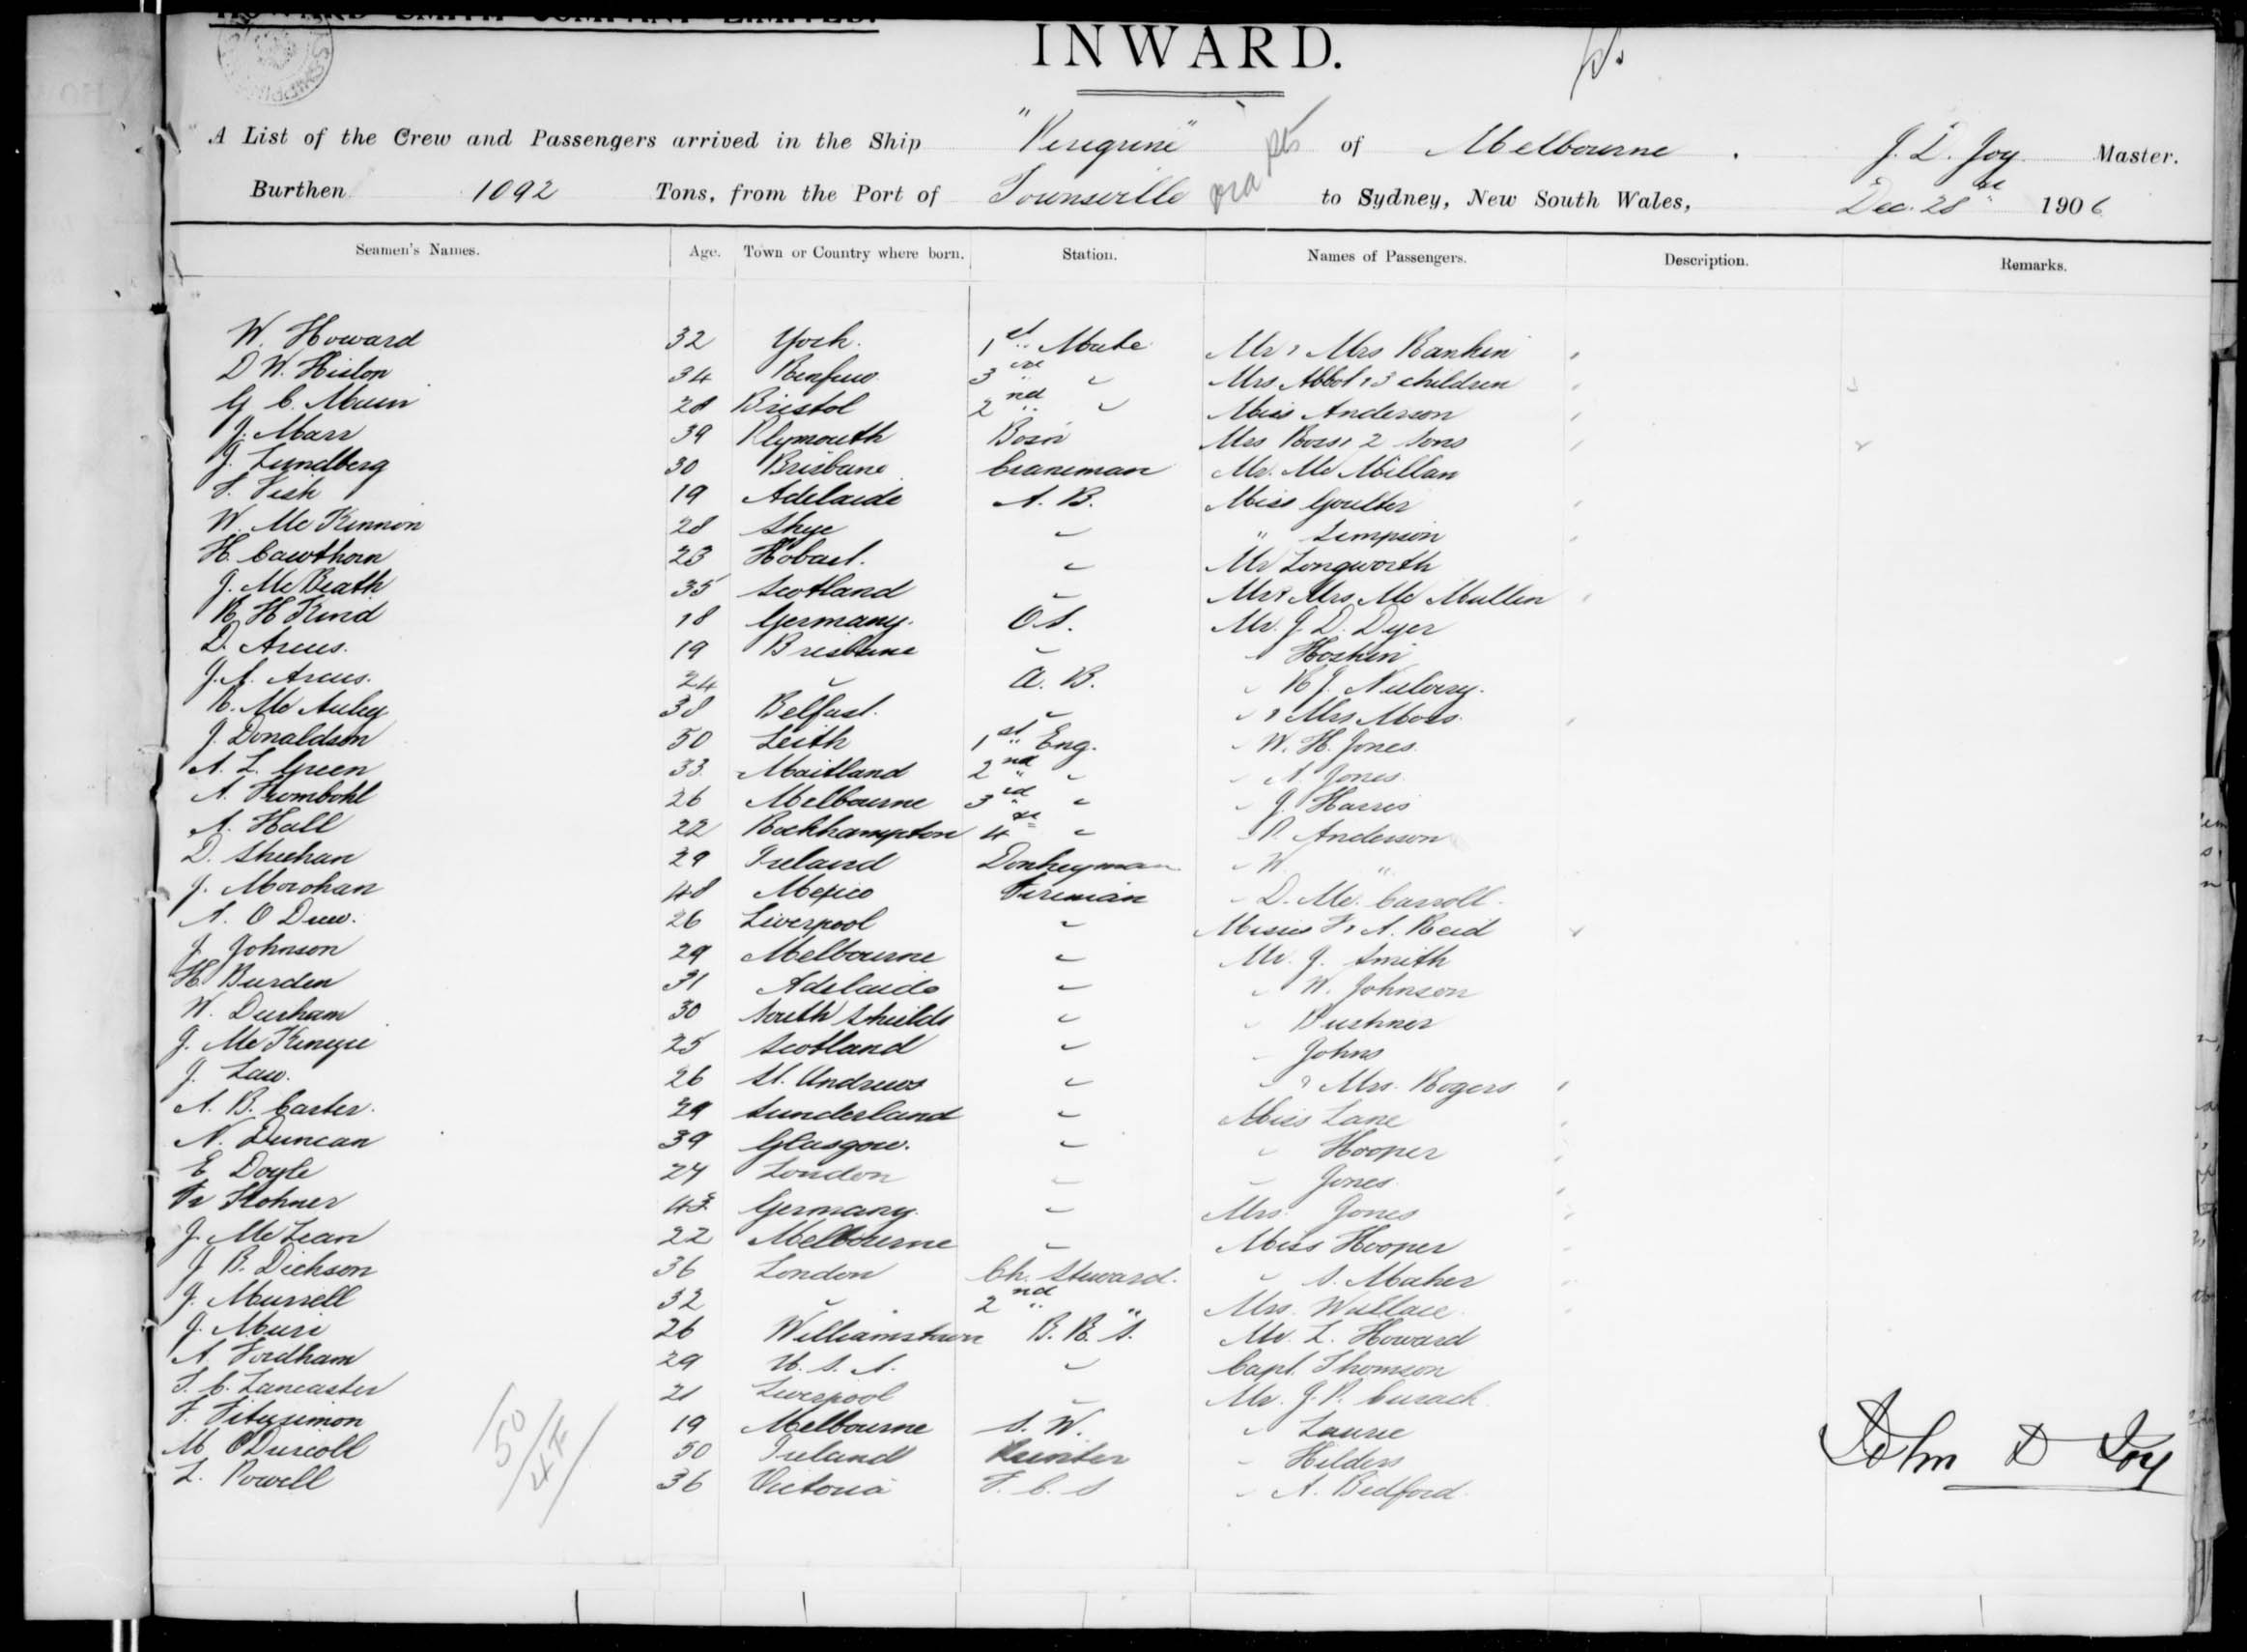 HOWARD SMITH COMPANY LIMITED.
INWARD.
A List of the Crew and Passengers arrived in the Ship "Peregrine" of Melbourne. J. D. Joy Master.
Burthen 1092 Tons, from the Port of Townsville via pts to Sydney, New South Wales, Dec. 28th 1906
Seamen's Names. Age. Town or Country where born. Station. Names of Passengers. Description. Remarks.
W. Howard 32 York. 1st Mate Mr & Mrs Rankin
D W. Hislop 34 Renfrew 3rd " Mrs Abbot & 3 children
G C. Muir 28 Bristol 2nd " Miss Anderson
J. Marr 39 Plymouth Bosn Mrs Ross & 2 Sons
J. Lundberg 30 Brisbane Craneman Mr. Mc Millan
S. Fish 19 Adelaide A. B. Miss Goulter
W. Mc Kinnon 28 Skye " " Simpson
H. Cawthorn 23 Hobart. " Mr Longworth
J. Mc Beath 35 Scotland " Mr & Mrs Mc Mullen
R H Kind 18 Germany. O.S. Mr. J. D. Dyer
D. Arcus. 19 Brisbane " " Hoskin
J. A. Arcus. 24 " A. B. " R J.
R. Mc Auley 38 Belfast. " " & Mrs Moss.
J. Donaldson 50 Leith 1st Eng. " W. H. Jones.
A. L. Green 33 Maitland 2nd " " A. Jones.
A. Trombohl 26 Melbourne 3rd " " J. Harris
A. Hall 22 Rockhampton 4th " " P. Anderson
D. Sheehan 29 Ireland Donkeyman " W "
J. Morohan 48 Mexico Fireman " D. Mc. Carroll.
A. O Drew. 26 Liverpool " Misses F & A. Reid
J. Johnson 29 Melbourne " Mr. J. Smith
H. Burden 31 Adelaide " " W. Johnson
W. Durham 30 South Shields " "
J. Mc Kenzie 25 Scotland " " Johns
J. Law. 26 St. Andrews " " & Mrs. Rogers
A. B. Carter. 29 Sunderland " Miss Lane
N. Duncan 39 Glasgow. " " Hooper
E Doyle 24 London " " Jones.
Fr Kohner 43 Germany. " Mrs. Jones
J. Mc Lean 22 Melbourne " Miss Hooper
J B. Dickson 36 London Ch. Steward. " S. Maher
J. Murrell 32 " 2nd " Mrs. Wallace.
J. Muri 26 Williamstown B. R. S. Mr. L. Howard
A. Fordham 29 U. S. A. " Capt. Thomson
T. C. Lancaster 21 Liverpool " Mr. J. P. Cusack
F. Fitzsimon 19 Melbourne S. W. " Laurie
M O'Driscoll 50 Ireland " Hilders
L. Powell 36 Victoria F. C. S " A. Bedford.
50
4F
John D Joy